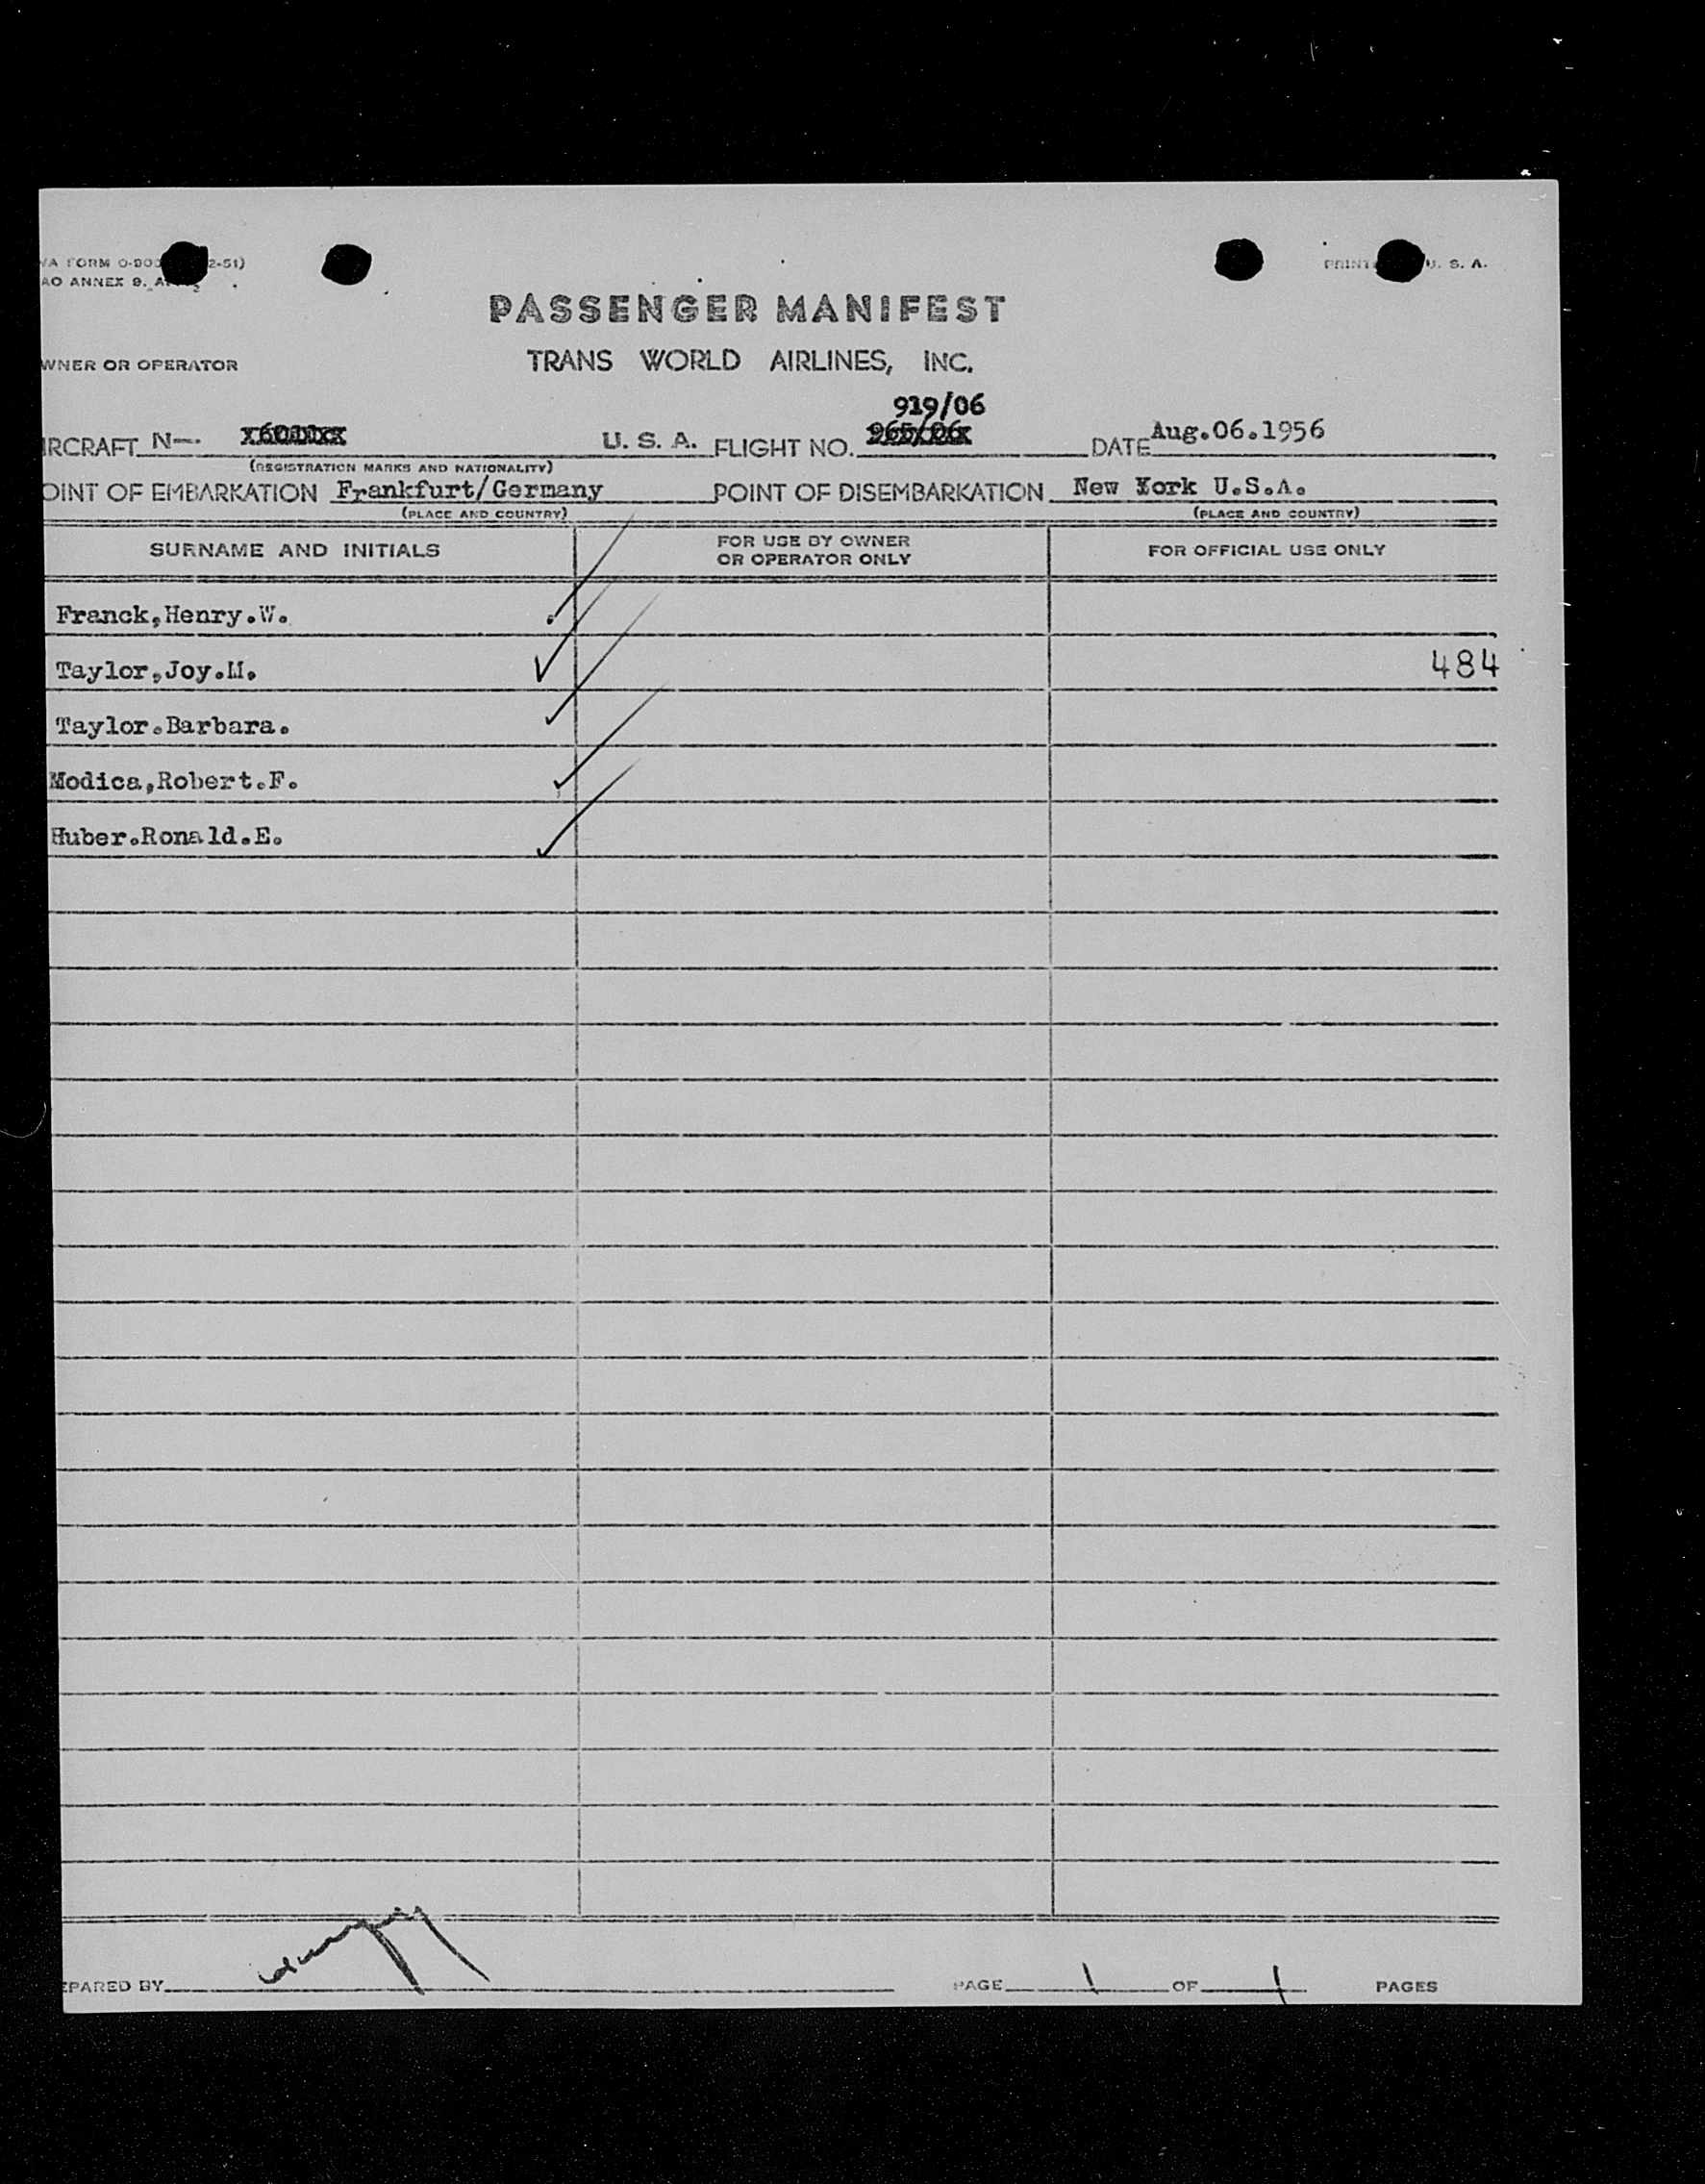 PRINT U. S. A.
ANNEX 9.
PASSENGER MANIFEST
WNER OR OPERATOR TRANS WORLD AIRLINES, INC.
919/06
IRCRAFT N—. U. S. A. FLIGHT NO. 965/06 DATE Aug.06.1956
(REGISTRATION MARKS AND NATIONALITY)
OINT OF EMBARKATION Frankfurt/Germany POINT OF DISEMBARKATION New York U.S.A.
(PLACE AND COUNTRY) (PLACE AND COUNTRY)
SURNAME AND INITIALS FOR USE BY OWNER OR OPERATOR ONLY FOR OFFICIAL USE ONLY
Franck,Henry.W.
Taylor,Joy.M. 484
Taylor.Barbara.
Modica,Robert.F.
Huber.Ronald.E.
EPARED BY PAGE 1 OF 1 PAGES